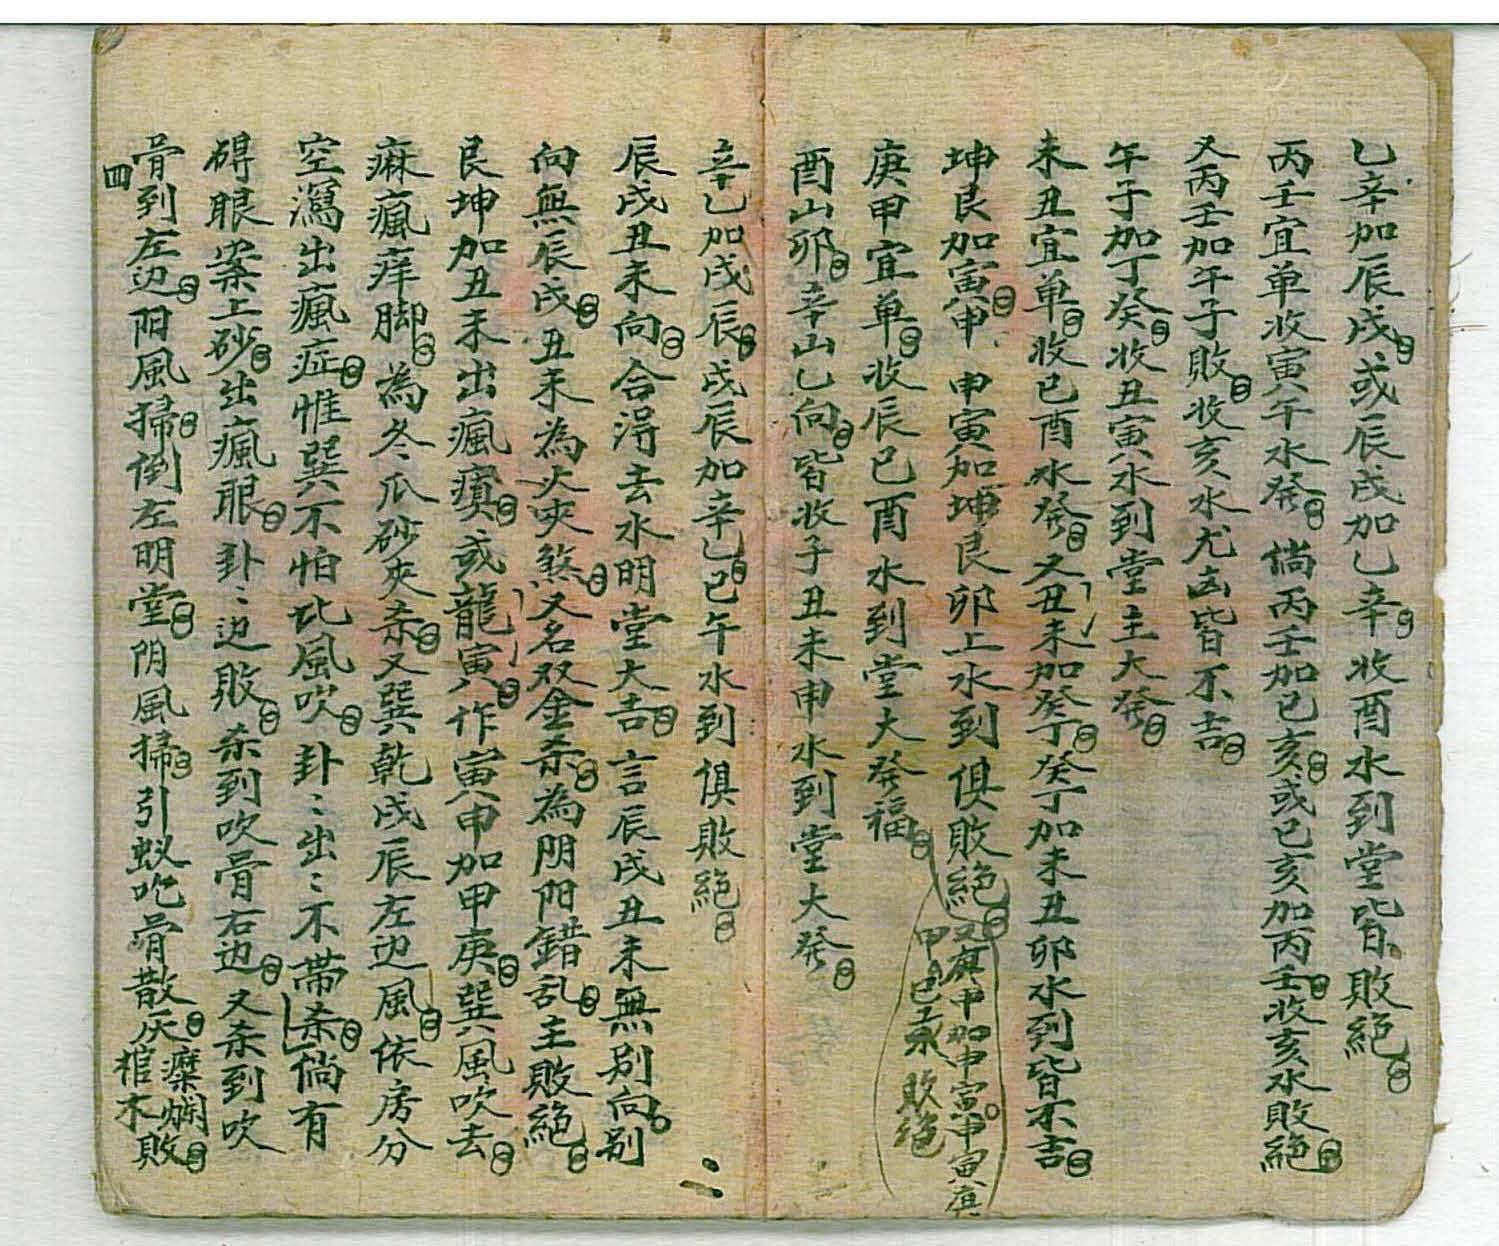 乙辛加辰戌或辰戌加乙辛收酉水到堂皆敗絕
丙壬宜单收寅午水發倘丙壬加巳亥或巳亥加丙壬收亥水敗絕
又丙壬加午子敗收亥水尤凶皆不吉
午子加丁癸收丑寅水到堂主大發
未丑宜单收巳酉水發又丑未加癸丁癸丁加未丑卯水到皆不吉
坤艮加寅申申寅加坤艮卯上水到俱敗絕
又庚甲加申寅申寅庚
甲巳上水敗絕
庚甲宜单收辰巳酉水到堂大發福
酉山卯辛山乙向皆收子丑未申水到堂大發
辛乙加戌辰戌辰加辛乙巳午水到俱敗絕
辰戌丑未向合淂去水明堂大吉言辰戌丑未無别向别
向無辰戌丑未為火夾煞又名双金杀為阴阳錯乱主敗絕
艮坤加丑未出瘋㿔或龍寅作寅申加甲庚巽風吹去
痳瘋痒脚為冬瓜砂夾杀又巽乾戌辰左边風依房分
空瀉出瘋症惟巽不怕此風吹卦〻出〻不帶杀倘有
碍眼案上砂出瘋眼卦〻边敗杀到吹骨右边又杀到吹
骨到左边阳風掃倒左明堂阴風掃引蚁吃骨散灰
棺木敗
四